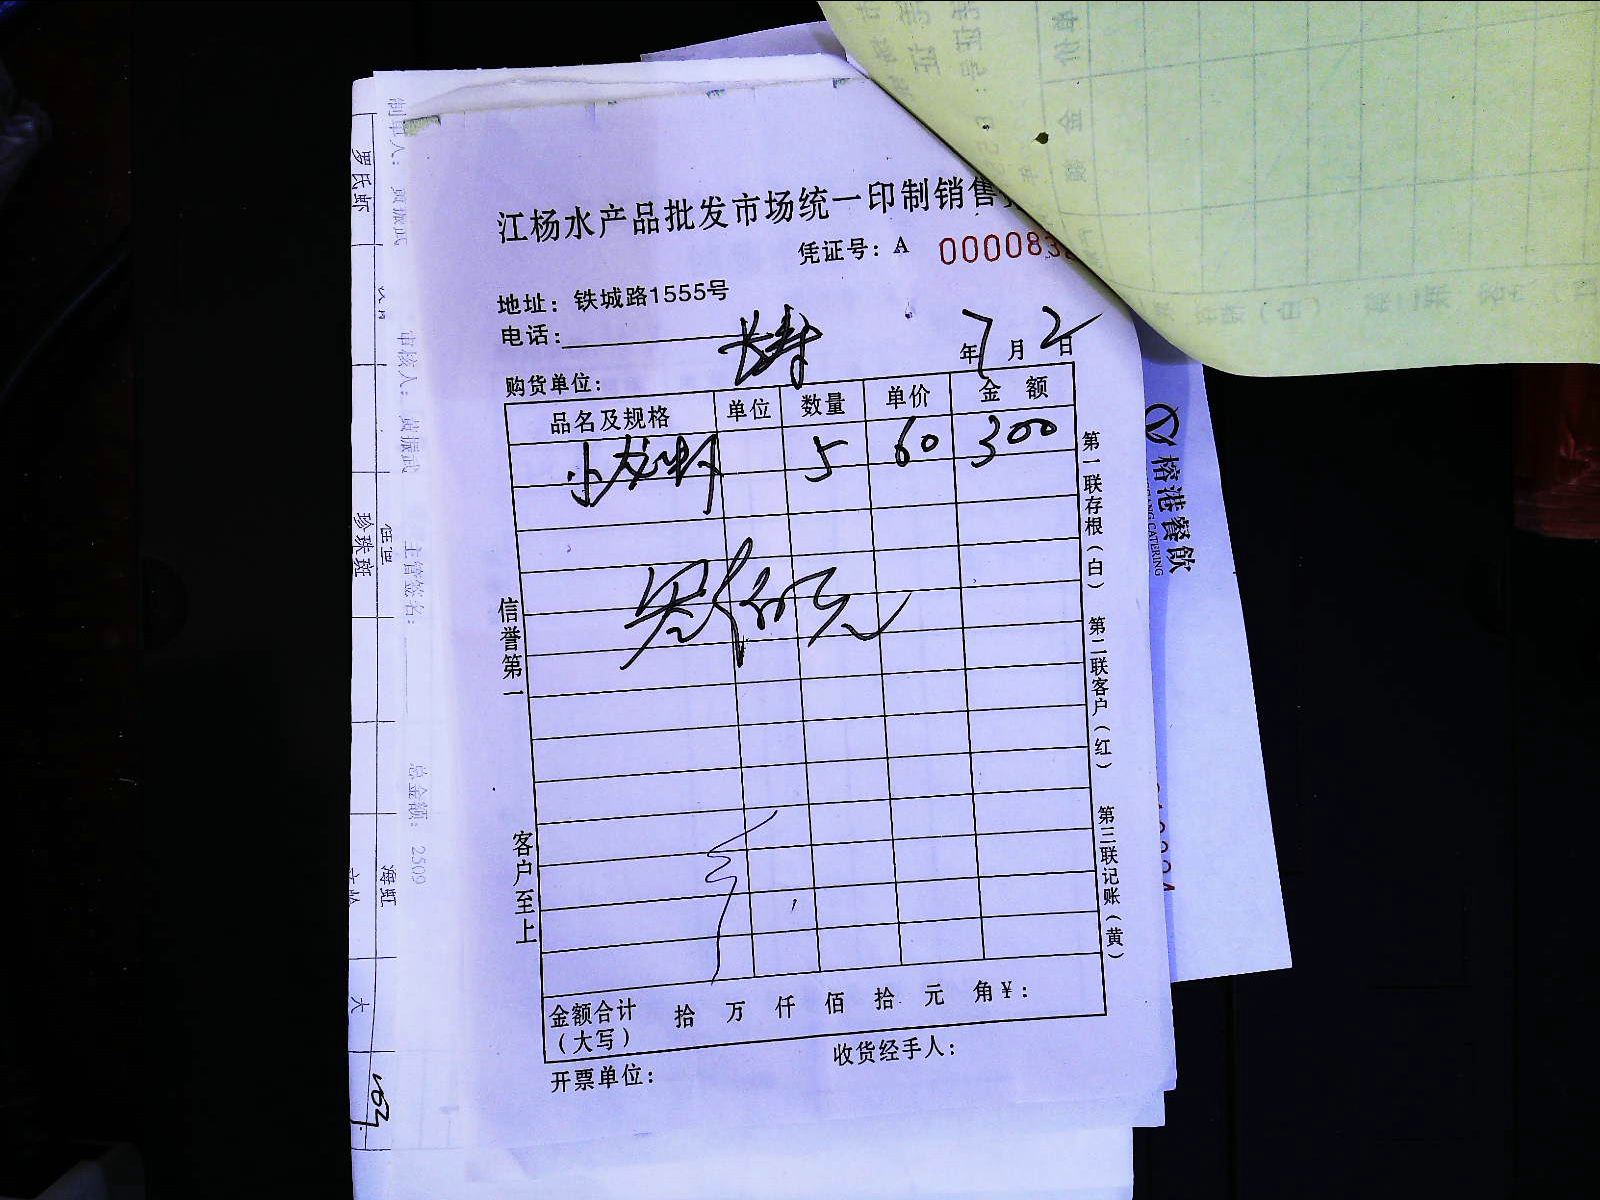 江杨水产品批发市场统一印制销售
凭证号：A 000083
地址：铁城路1555号
电话：
年7月2日
购货单位：
长寿
品名及规格 单位 数量 单价 金额
小龙虾 5 60 300
信誉第一
客户至上
第一联存根（白）
第二联客户（红）
第三联记账（黄）
金额合计（大写） 拾 万 仟 佰 拾 元 角￥：
收货经手人：
开票单位：
制单人：黄振武
审核人：黄振武
主管签名：
总金额：2509
罗氏虾
珍珠斑
海虹
大
榕港餐飲